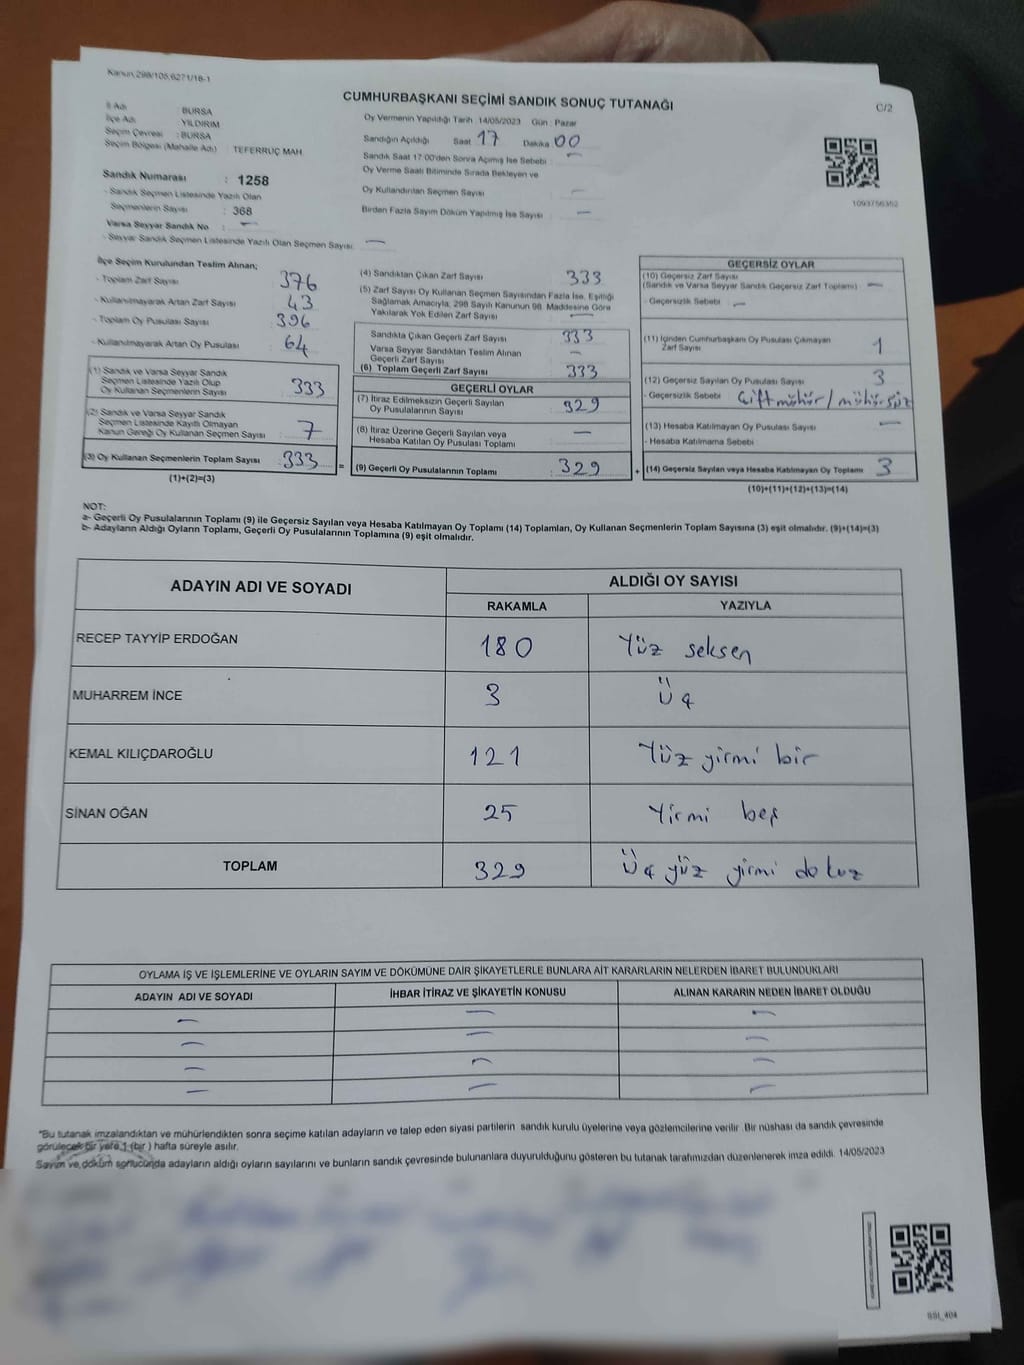 Kanun 298/105,6271/18-1
CUMHURBAŞKANI SEÇİMİ SANDIK SONUÇ TUTANAĞI
C/2
İl Adı : BURSA
İlçe Adı : YILDIRIM
Seçim Çevresi : BURSA
Seçim Bölgesi (Mahalle Adı) : TEFERRUÇ MAH.
Sandık Numarası : 1258
- Sandık Seçmen Listesinde Yazılı Olan
Seçmenlerin Sayısı : 368
Varsa Seyyar Sandık No : —
- Seyyar Sandık Seçmen Listesinde Yazılı Olan Seçmen Sayısı: —
Oy Vermenin Yapıldığı Tarih :14/05/2023 Gün : Pazar
Sandığın Açıldığı Saat 17 Dakika 00
Sandık Saat 17.00'den Sonra Açımış İse Sebebi : —
Oy Verme Saati Bitiminde Sırada Bekleyen ve
Oy Kullandırılan Seçmen Sayısı —
Birden Fazla Sayım Döküm Yapılmış İse Sayısı : —
1093756352
İlçe Seçim Kurulundan Teslim Alınan;
- Toplam Zarf Sayısı 376
- Kullanılmayarak Artan Zarf Sayısı 43
- Toplam Oy Pusulası Sayısı 396
- Kullanılmayarak Artan Oy Pusulası 64
(1) Sandık ve Varsa Seyyar Sandık
Seçmen Listesinde Yazılı Olup
Oy Kullanan Seçmenlerin Sayısı 333
(2) Sandık ve Varsa Seyyar Sandık
Seçmen Listesinde Kayıtlı Olmayan
Kanun Gereği Oy Kullanan Seçmen Sayısı 7
(3) Oy Kullanan Seçmenlerin Toplam Sayısı 333 =
(1)+(2)=(3)
(4) Sandıktan Çıkan Zarf Sayısı 333
(5) Zarf Sayısı Oy Kullanan Seçmen Sayısından Fazla İse, Eşitliği
Sağlamak Amacıyla, 298 Sayılı Kanunun 98. Maddesine Göre
Yakılarak Yok Edilen Zarf Sayısı —
Sandıkta Çıkan Geçerli Zarf Sayısı 333
Varsa Seyyar Sandıktan Teslim Alınan
Geçerli Zarf Sayısı —
(6) Toplam Geçerli Zarf Sayısı 333
GEÇERLİ OYLAR
(7) İtiraz Edilmeksizin Geçerli Sayılan
Oy Pusulalarının Sayısı 329
(8) İtiraz Üzerine Geçerli Sayılan veya
Hesaba Katılan Oy Pusulası Toplamı —
(9) Geçerli Oy Pusulalarının Toplamı 329 +
GEÇERSİZ OYLAR
(10) Geçersiz Zarf Sayısı
(Sandık ve Varsa Seyyar Sandık Geçersiz Zarf Toplamı) —
- Geçersizlik Sebebi —
(11) İçinden Cumhurbaşkanı Oy Pusulası Çıkmayan
Zarf Sayısı 1
(12) Geçersiz Sayılan Oy Pusulası Sayısı 3
- Geçersizlik Sebebi Çift mühür / mühürsüz
(13) Hesaba Katılmayan Oy Pusulası Sayısı —
- Hesaba Katılmama Sebebi
(14) Geçersiz Sayılan veya Hesaba Katılmayan Oy Toplamı 3
(10)+(11)+(12)+(13)=(14)
NOT:
a- Geçerli Oy Pusulalarının Toplamı (9) ile Geçersiz Sayılan veya Hesaba Katılmayan Oy Toplamı (14) Toplamları, Oy Kullanan Seçmenlerin Toplam Sayısına (3) eşit olmalıdır. (9)+(14)=(3)
b- Adayların Aldığı Oyların Toplamı, Geçerli Oy Pusulalarının Toplamına (9) eşit olmalıdır.
ADAYIN ADI VE SOYADI
ALDIĞI OY SAYISI
RAKAMLA YAZIYLA
RECEP TAYYİP ERDOĞAN 180 Yüz seksen
MUHARREM İNCE 3 Üç
KEMAL KILIÇDAROĞLU 121 Yüz yirmi bir
SİNAN OĞAN 25 Yirmi beş
TOPLAM 329 Üç yüz yirmi dokuz
OYLAMA İŞ VE İŞLEMLERİNE VE OYLARIN SAYIM VE DÖKÜMÜNE DAİR ŞİKAYETLERLE BUNLARA AİT KARARLARIN NELERDEN İBARET BULUNDUKLARI
ADAYIN ADI VE SOYADI İHBAR İTİRAZ VE ŞİKAYETİN KONUSU ALINAN KARARIN NEDEN İBARET OLDUĞU
— — —
— — —
— — —
— — —
"Bu tutanak imzalandıktan ve mühürlendikten sonra seçime katılan adayların ve talep eden siyasi partilerin sandık kurulu üyelerine veya gözlemcilerine verilir. Bir nüshası da sandık çevresinde
görülecek bir yere 1 (bir ) hafta süreyle asılır.
Sayım ve döküm sonucunda adayların aldığı oyların sayılarını ve bunların sandık çevresinde bulunanlara duyurulduğunu gösteren bu tutanak tarafımızdan düzenlenerek imza edildi. 14/05/2023
SSI_404